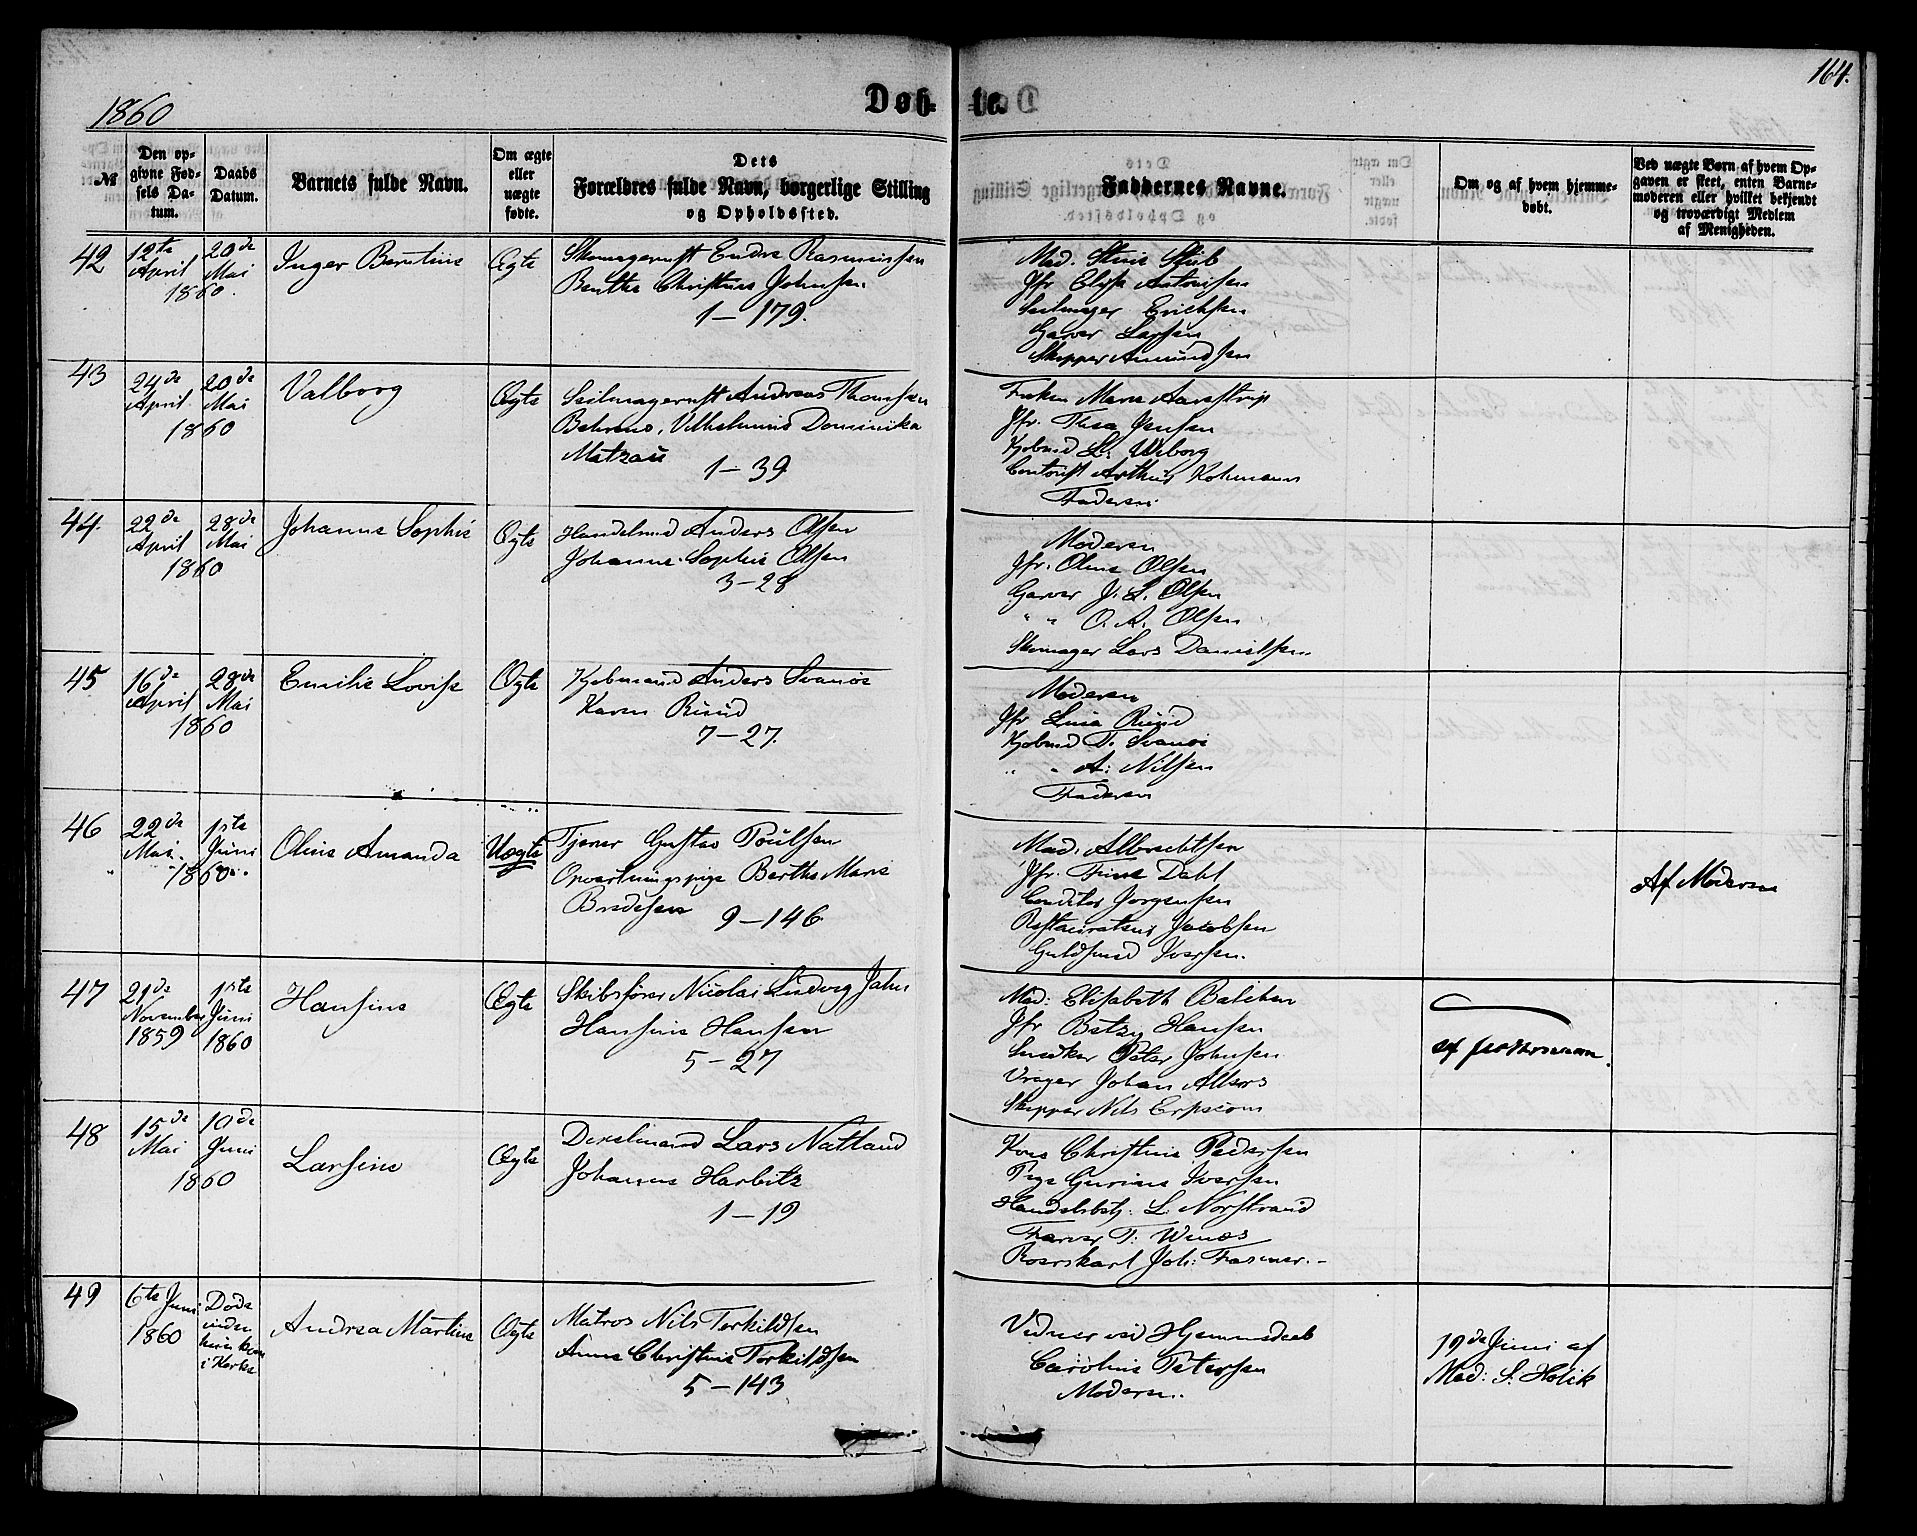 1860
Døb-
te.
164.
№
Den op-
givne Fød-
sels Da-
tum.
Daabs
Datum.
Barnets fulde Navn.
Om ægte
eller
uægte
fødte.
Dets
Forældres fulde Navn, borgerlige Stilling
og Opholdssted.
Faddernes Navne.
Om og af hvem hjemme-
døbt.
Ved uægte Børn af hvem Op-
gaven er skeet, enten Barne-
moderen eller hvilket bekjendt
og troværdigt Medlem
af Menigheden.
42
12te
April
20de
Mai
1860.
Inger Berntine
Ægte
Skomagersvst Endre Rasmussen
Benthe Christine Johnsen
1–179.
Mad. Stine Stub
Jfr Elise Antonisen
Seilmager Erichsen
Garver Larsen
Skipper Amundsen
43
24de
April
20de
Mai
1860
Valborg
Ægte
Seilmagersvst Andreas Thomsen
Behrens, Vilhelmine Dominika
Matzau
1–39
Frøken Marie Aarestrup
Jfr. Thea Jensen
Kjøbmd L. Wiborg
Contorist Arthur Kohmann
Faderen.
44.
22de
April
28de
Mai
1860
Johanne Sophie
Ægte
Handelsmd Anders Olsen
Johanne Sophie Olsen
3–28
Moderen
Jfr. Oline Olsen
Garver J. L. Olsen
" " O. A. Olsen
Skomager Lars Danielsen
45
16de
April
28de
Mai
1860
Emilie Lovise
Ægte
Kjøbmand Anders Svanøe
Karen Ruud
7–27.
Moderen
Jfr Luisa Ruud
Kjøbmd T. Svanøe
" " A. Nilsen
Faderen
46
22de
Mai.
1ste
Juni
1860.
Oline Amanda
Uægte
Tjener Gustav Poulsen
Opvartningspige Berthe Marie
Bredesen 9–146
Mad. Albrechtsen
Jfr. Trine Dahl
Conditor Jørgensen
Restaurateur Jacobsen
Guldsmed Iversen.
Af Moderen
47
21de
November
1859
1ste
Juni
1860
Hansine
Ægte
Skibsfører Nicolai Ludvig Jahn
Hansine Hansen
5–27
Mad: Elisabeth Balchen
Jfr Betzy Hansen
Snedker Peter Johnsen
Vrager Johan Albers
Skipper Nils Erpecom
af
48
15de
Mai
10de
Juni
1860
Larsine
Ægte
Lars Natland
Johanne Harbitz
1–19
Kone Christine Pedersen
Pige Gurine Iversen
Handelsbetj: L. Norstrand
Farver T. Wenæs
Roerskarl Joh: Fasmer.–
49
6te Juni
1860
Døde
inden
kom
i Kirke
Andrea Martine
Ægte
Matros Nils Terkildsen
Anne Christine Terkildsen
5–143
Vidner ved Hjemmedaab
Caroline Petersen
Moderen.
19de Juni af
Mad: S. Holik